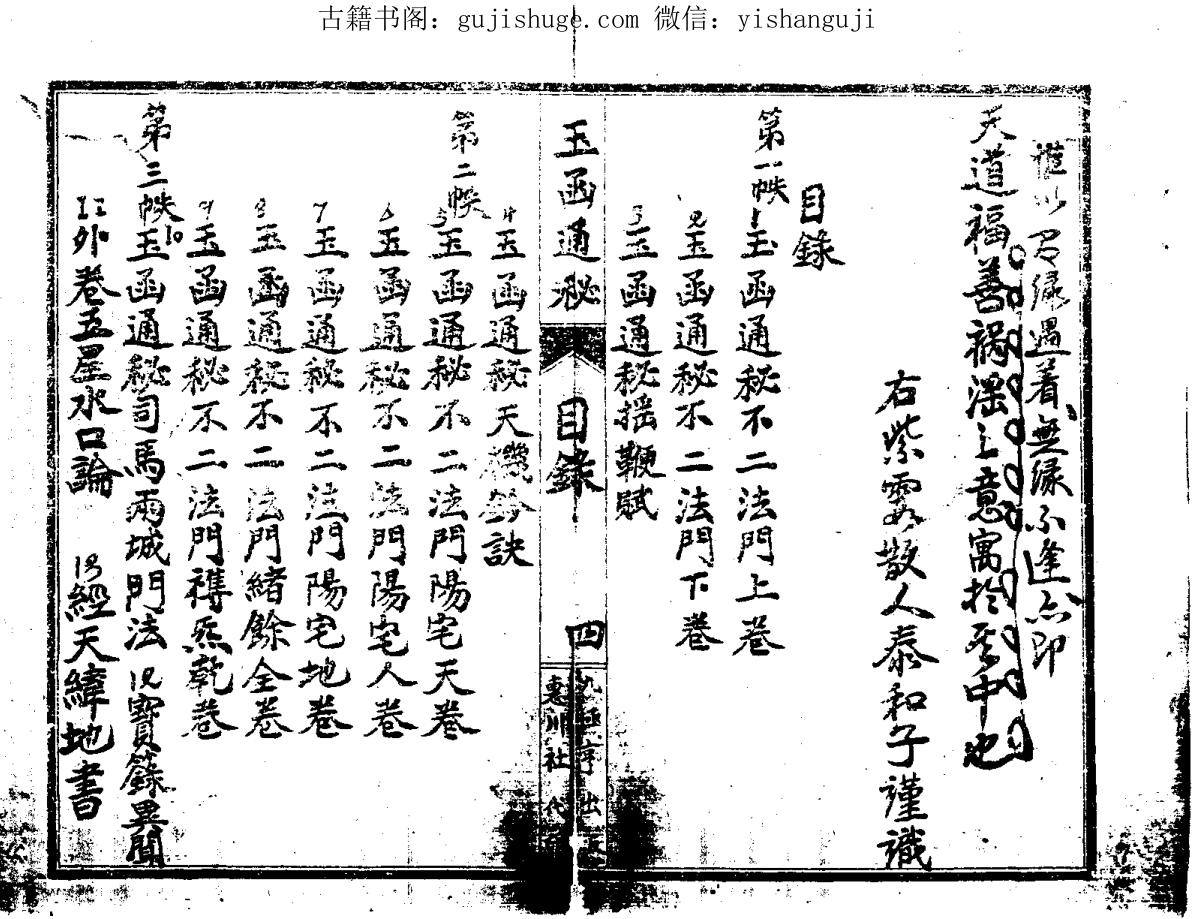 古籍书阁：gujishuge.com 微信：yishanguji
惟以有緣遇着無緣不逢亦即
天道福善禍淫之意寓於其中也
右紫霞散人泰和子謹識
目錄
第一帙1玉函通秘不二法門上卷
2玉函通秘不二法門下卷
3玉函通秘搖鞭賦
玉函通秘 目錄 四
出
惠川社代
4玉函通秘天機鈐訣
第二帙5玉函通秘不二法門陽宅天卷
6玉函通秘不二法門陽宅人卷
7玉函通秘不二法門陽宅地卷
8玉函通秘不二法門緒餘全卷
9玉函通秘不二法門乾卷
第三帙10玉函通秘司馬雨城門法 12寶籙異聞
11外卷五星水口論 13經天緯地書